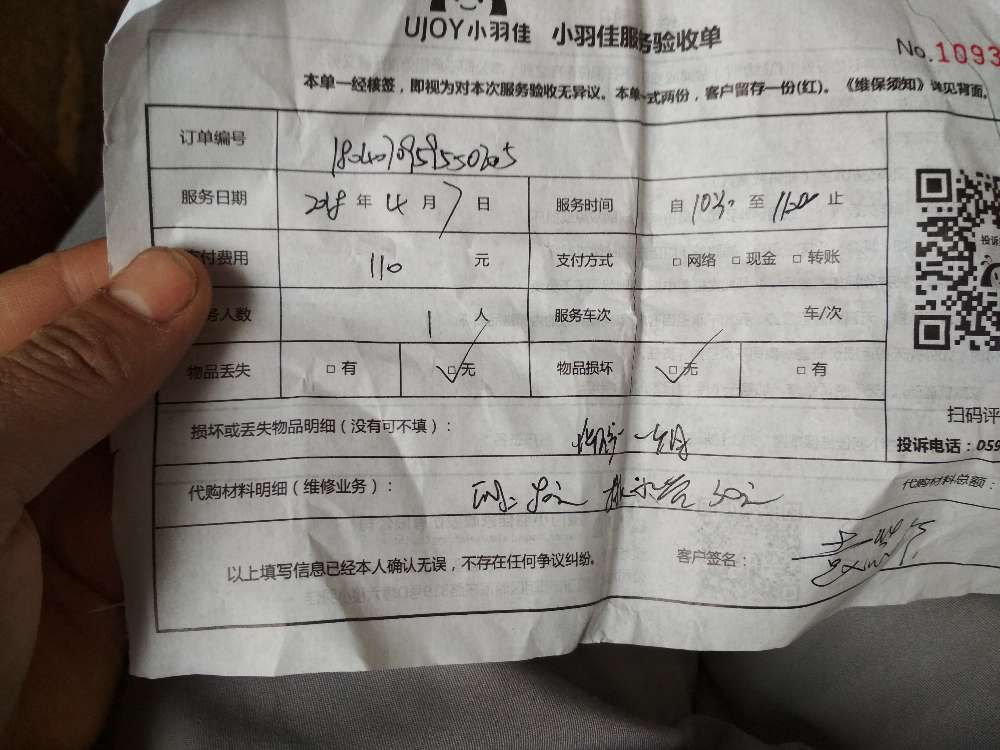 UJOY小羽佳 小羽佳服务验收单
No.1093
本单一经核签，即视为对本次服务验收无异议。本单一式两份，客户留存一份(红)。《维保须知》详见背面。
订单编号
服务日期 2018 年 4 月 7 日 服务时间 自 至 止
支付费用 110 元 支付方式 □ 网络 □ 现金 □ 转账
务人数 1 人 服务车次 车/次
物品丢失 □ 有 □无 物品损坏 □ 无 □ 有
扫码评
损坏或丢失物品明细（没有可不填）：
投诉电话：059
代购材料明细（维修业务）：
代购材料总额：
以上填写信息已经本人确认无误，不存在任何争议纠纷。 客户签名：
投诉